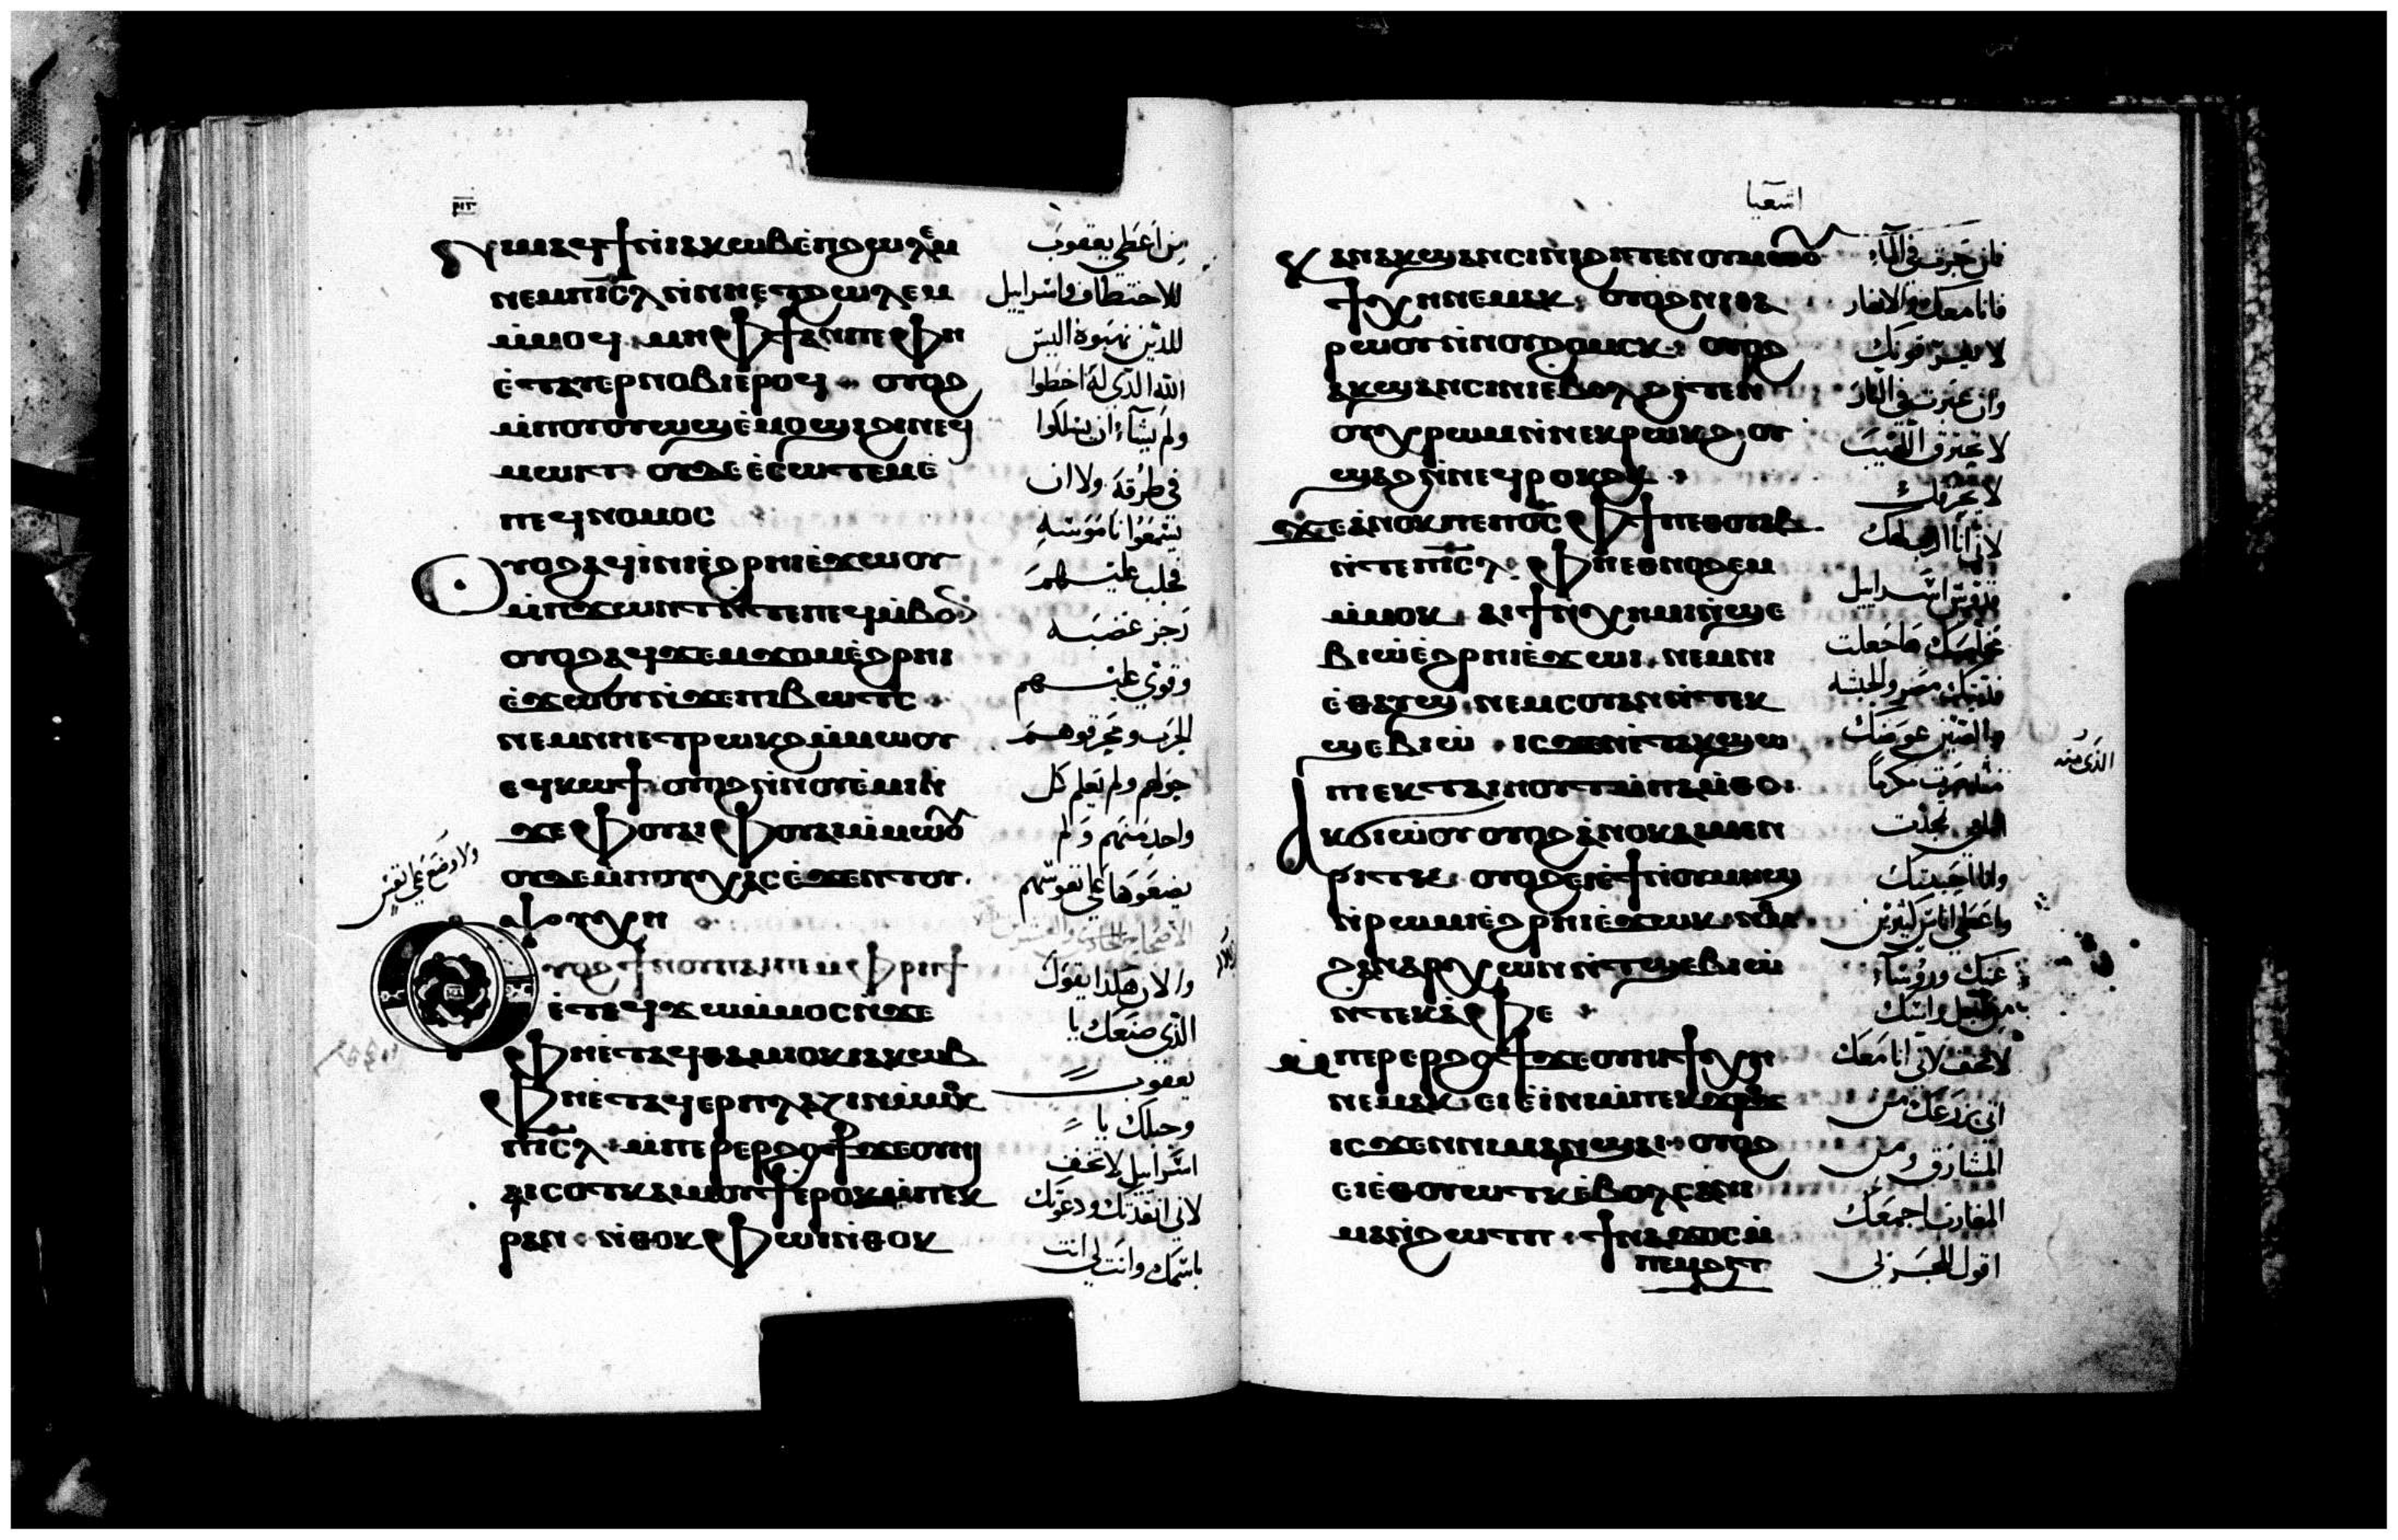 ⲣ̅ⲓ̅ⲋ̅
ⲛⲓⲙ ⲁϥϯ ⲛ̀ⲓⲁⲕⲱⲃ ⲉ̀ⲡϩⲱⲗⲉⲙ
ⲛⲉⲙ ⲡⲓ̅ⲥ̅ⲗ ⲛ̀ⲛⲏⲉⲧϩⲱⲗⲉⲙ
ⲙ̀ⲙⲟϥ ⲙⲏ ⲫϯ ⲁⲛ ⲡⲉ ⲫⲏ
ⲉ̀ⲧⲁⲩⲉⲣⲛⲟⲃⲓ ⲉ̀ⲣⲟϥ ⲟⲩⲟϩ
ⲙ̀ⲡⲟⲩⲟⲩⲱϣ ⲉ̀ⲙⲟϣⲓ ϩⲓ ⲛⲉϥ
ⲙⲱⲓⲧ ⲟⲩⲇⲉ ⲉ̀ⲥⲱⲧⲉⲙ ⲉ̀
ⲡⲉϥⲛⲟⲙⲟⲥ
ⲟⲩⲟϩ ⲁϥⲓⲛⲓ ⲉ̀ϩⲣⲏⲓ ⲉ̀ϫⲱⲟⲩ
ⲙ̀ⲡϫⲱⲛⲧ ⲛ̀ⲧⲉ ⲡⲉϥⲙ̀ⲃⲟⲛ
ⲟⲩⲟϩ ⲁϥϫⲉⲙϫⲟⲙ ⲉ̀ϩⲣⲏⲓ
ⲉ̀ϫⲱⲟⲩ ⲛ̀ϫⲉ ⲡⲓⲃⲱⲧⲥ
ⲛⲉⲙ ⲛⲏⲉⲧⲣⲱⲕϩ ⲙ̀ⲙⲱⲟⲩ
ⲉⲩⲕⲱϯ ⲟⲩⲟϩ ⲙ̀ⲡⲟⲩⲉ̀ⲙⲓ ⲛ̀
ϫⲉ ⲫⲟⲩⲁⲓ ⲫⲟⲩⲁⲓ ⲙ̀ⲙⲱⲟⲩ
ⲟⲩⲇⲉ ⲙ̀ⲡⲟⲩⲭⲁⲥ ⲉ̀ϫⲉⲛ ⲧⲟⲩ
ⲯⲩⲭⲏ
ⲟⲩⲟϩ ϯⲛⲟⲩ ⲡⲁⲓⲣⲏϯ
ⲉ̀ⲧⲉϥϫⲱ ⲙ̀ⲙⲟⲥ ⲛ̀ϫⲉ
ⲫⲏⲉ̀ⲧⲁϥⲑⲁⲙⲓⲟⲕ ⲓⲁⲕⲱⲃ
ⲫⲏⲉ̀ⲧⲁϥⲉⲣⲡⲗⲁⲍⲓⲛ ⲙ̀ⲙⲟⲕ
ⲡⲓ̅ⲥ̅ⲗ ⲙ̀ⲡⲉⲣⲉⲣϩⲟϯ ϫⲉ ⲟⲩⲏⲓ
ⲁⲓⲥⲟⲧⲕ ⲁⲓⲙⲟⲩϯ ⲉ̀ⲣⲟⲕ ⲙ̀ⲡⲉⲕ
ⲣⲁⲛ ⲛ̀ⲑⲟⲕ ⲫⲱⲓ ⲛ̀ⲑⲟⲕ
من اعطي يعقوب
للاختطاف واسراييل
للذين نهبوه اليس
الله الذي له اخطوا
ولم يشاء ان يسلكوا
في طرقه ولا ان
يسمعوا ناموسه
فجلب عليهم
رجز غضبه
وقوي عليهم
الحرب ومحرقوهم
حولهم ولم يعلم كل
واحد منهم ولم
يضعوها علي نفوسهم
والان هكذا يقول
الذي صنعك يا
يعقوب
وجبلك يا
اسراييل لا تخف
لاني انقذتك ودعوتك
باسمك وانت لي انت
اشعيا
ⲕⲁⲛ ⲁⲕϣⲁⲛⲥⲓⲛⲓ ϩⲓⲧⲉⲛ ⲟⲩⲙⲱⲟⲩ
ϯⲭⲏ ⲛⲉⲙⲁⲕ ⲟⲩⲟϩ ⲛⲓⲓⲁ
ⲣⲱⲟⲩ ⲛ̀ⲛⲟⲩϩⲟⲙⲥⲕ ⲟⲩⲟϩ
ⲁⲕϣⲁⲛⲥⲓⲛⲓ ⲉ̀ⲃⲟⲗ ϩⲓⲧⲉⲛ
ⲟⲩⲭⲣⲱⲙ ⲛ̀ⲛⲉⲕⲣⲱⲕϩ ⲟⲩ
ϣⲁϩ ⲛ̀ⲛⲉϥⲣⲟⲕϩⲕ
ϫⲉ ⲁ̀ⲛⲟⲕ ⲡⲉ ⲡⲟ̅ⲥ̅ ⲫϯ ⲡⲉⲑⲟⲩⲁⲃ
ⲛ̀ⲧⲉ ⲡⲓ̅ⲥ̅ⲗ ⲫⲏⲉⲑⲛⲟϩⲉⲙ
ⲙ̀ⲙⲟⲕ ⲁⲓϯ ⲛ̀ⲭⲏⲙⲓ ⲛ̀ϣⲉ
ⲃⲓⲱ̀ ⲉ̀ϩⲣⲏⲓ ⲉ̀ϫⲱⲕ ⲛⲉⲙ ⲛⲓ
ⲉ̀ⲑⲁⲩϣ ⲛⲉⲙ ⲥⲟⲩⲁⲛ ⲛ̀ⲧⲉⲕ
ϣⲉⲃⲓⲱ̀ ⲓⲥϫⲉⲛ ⲉ̀ⲧⲁⲕϣⲱ
ⲡⲓ ⲉⲕⲧⲁⲓⲏⲟⲩⲧ ⲙ̀ⲡⲁⲙ̀ⲑⲟ
ⲁⲕϭⲓⲱ̀ⲟⲩ ⲟⲩⲟϩ ⲁ̀ⲛⲟⲕ ⲁⲓⲙⲉⲛ
ⲣⲓⲧⲕ ⲟⲩⲟϩ ⲉⲓⲉ̀ϯ ⲛ̀ⲟⲩⲙⲏϣ
ⲛ̀ⲣⲱⲙⲓ ⲉ̀ϩⲣⲏⲓ ⲉ̀ϫⲱⲕ ⲛⲉⲙ
ϩⲁⲛⲁⲣⲭⲱⲛ ⲛ̀ⲧϣⲉⲃⲓⲱ̀
ⲛ̀ⲧⲉⲕⲁ̀ⲫⲉ
ⲙ̀ⲡⲉⲣⲉⲣϩⲟϯ ϫⲉ ⲟⲩⲏⲓ ϯⲭⲏ
ⲛⲉⲙⲁⲕ ⲉⲓⲉ̀ⲓⲛⲓ ⲙ̀ⲡⲉⲕϫⲣⲟϫ
ⲓⲥϫⲉⲛ ⲛⲓⲙⲁⲛ̀ϣⲁⲓ ⲟⲩⲟϩ
ⲉⲓⲉ̀ⲑⲟⲩⲱⲧⲕ ⲉ̀ⲃⲟⲗ ⲥⲁ ⲛⲓ
ⲙⲁⲛ̀ϩⲱⲧⲡ ϯⲛⲁϫⲟⲥ ⲙ̀
ⲡⲉⲙϩⲓⲧ
فان جزت في الماء
فانا معك والانهار
لا تغرقونك
وان عبرت في النار
لا تحترق اللهيب
لا يحرقك
لاني انا الرب الهك
قدوس اسراييل
مخلصك قد جعلت
فديتك مصر والحبشه
عوضك
الذي منه
مكرما
وانا احببتك
واعطي اناس كثيرين
عنك وروساء
لا تخف لاني انا معك
اتي بزرعك من
المشارق ومن
المغارب اجمعك
اقول للجربي